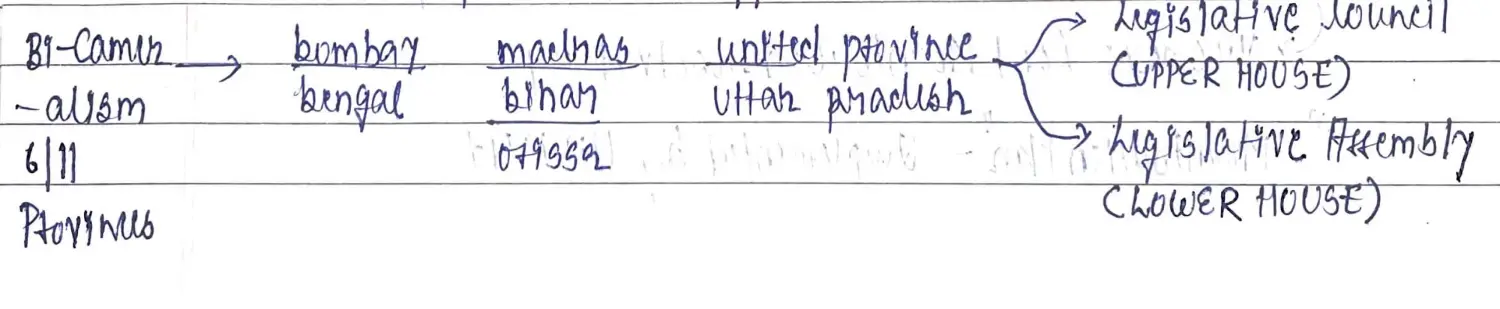 Bi-Camer → bombay madras united province → Legislative Council
(UPPER HOUSE)
-alism bengal bihar Uttar pradesh → Legislative Assembly
6/11 orissa
(LOWER HOUSE)
Provinces